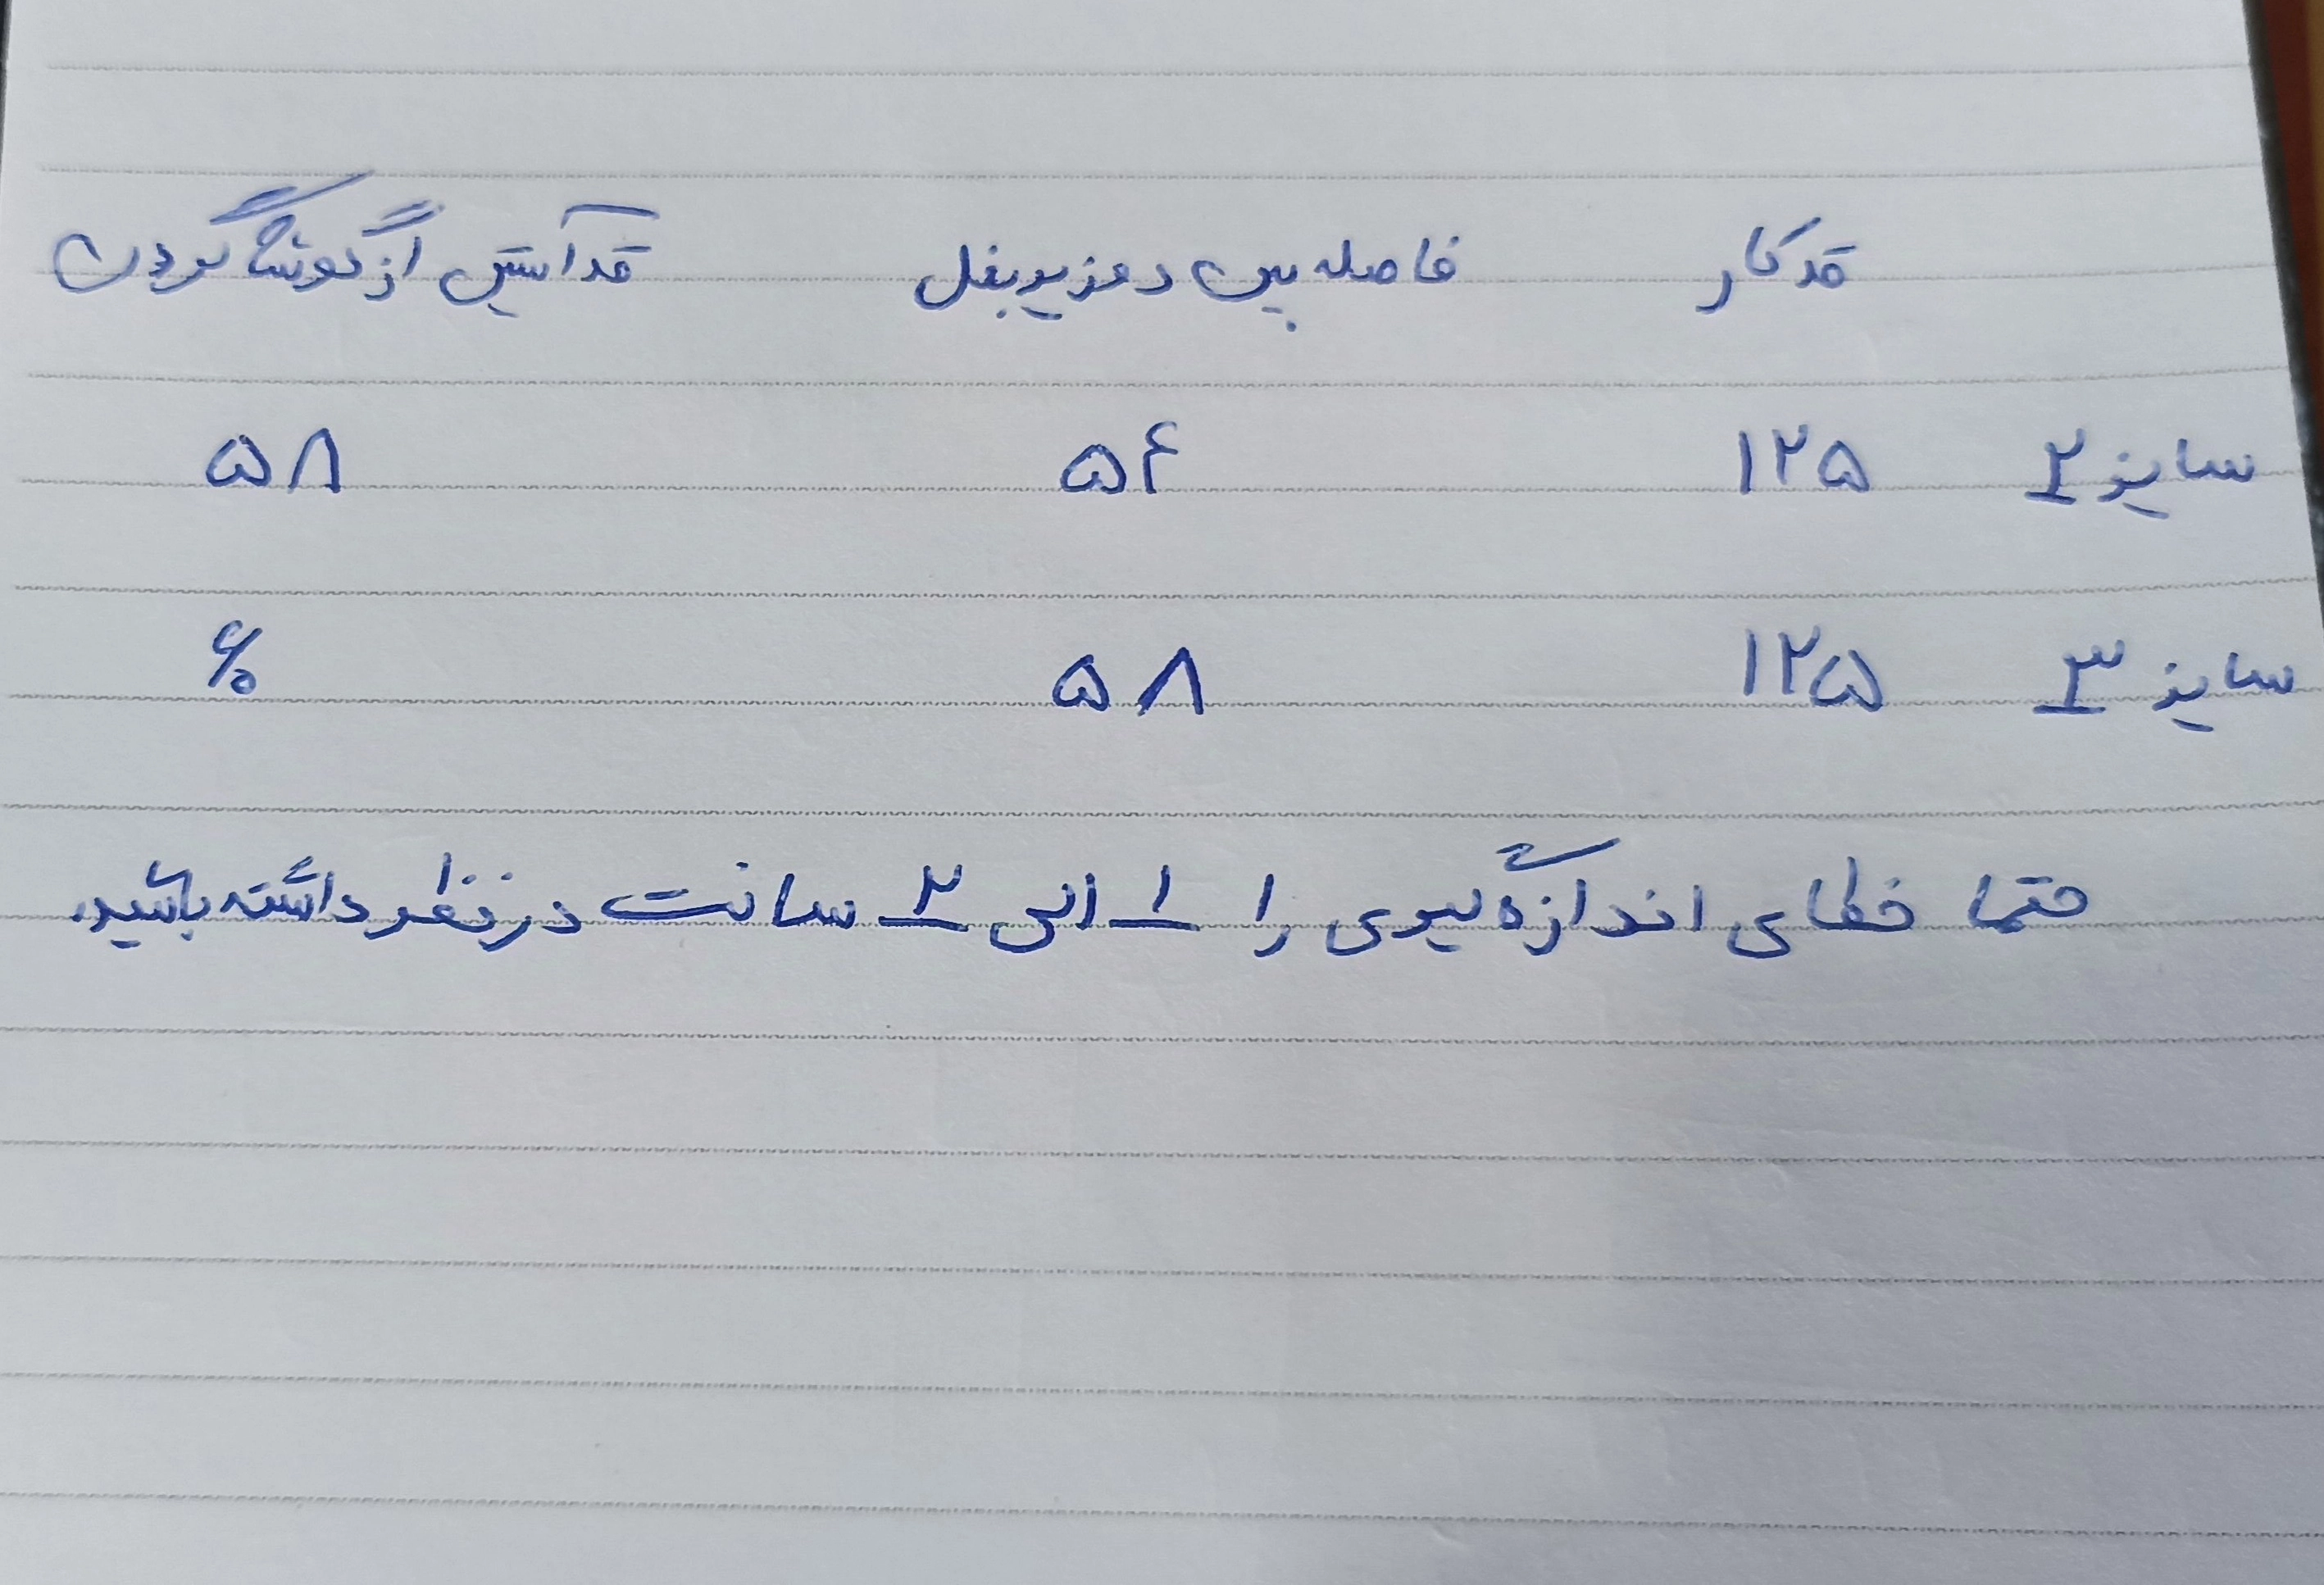 قد کار فاصله بین دو زیر بغل قد آستین از گوشه گردن
سایز ۲ ۱۲۵ ۵۶ ۵۸
سایز ۳ ۱۲۵ ۵۸ ۶۰
حتما خطای اندازه گیری را ۱ الی ۲ سانت در نظر داشته باشید.